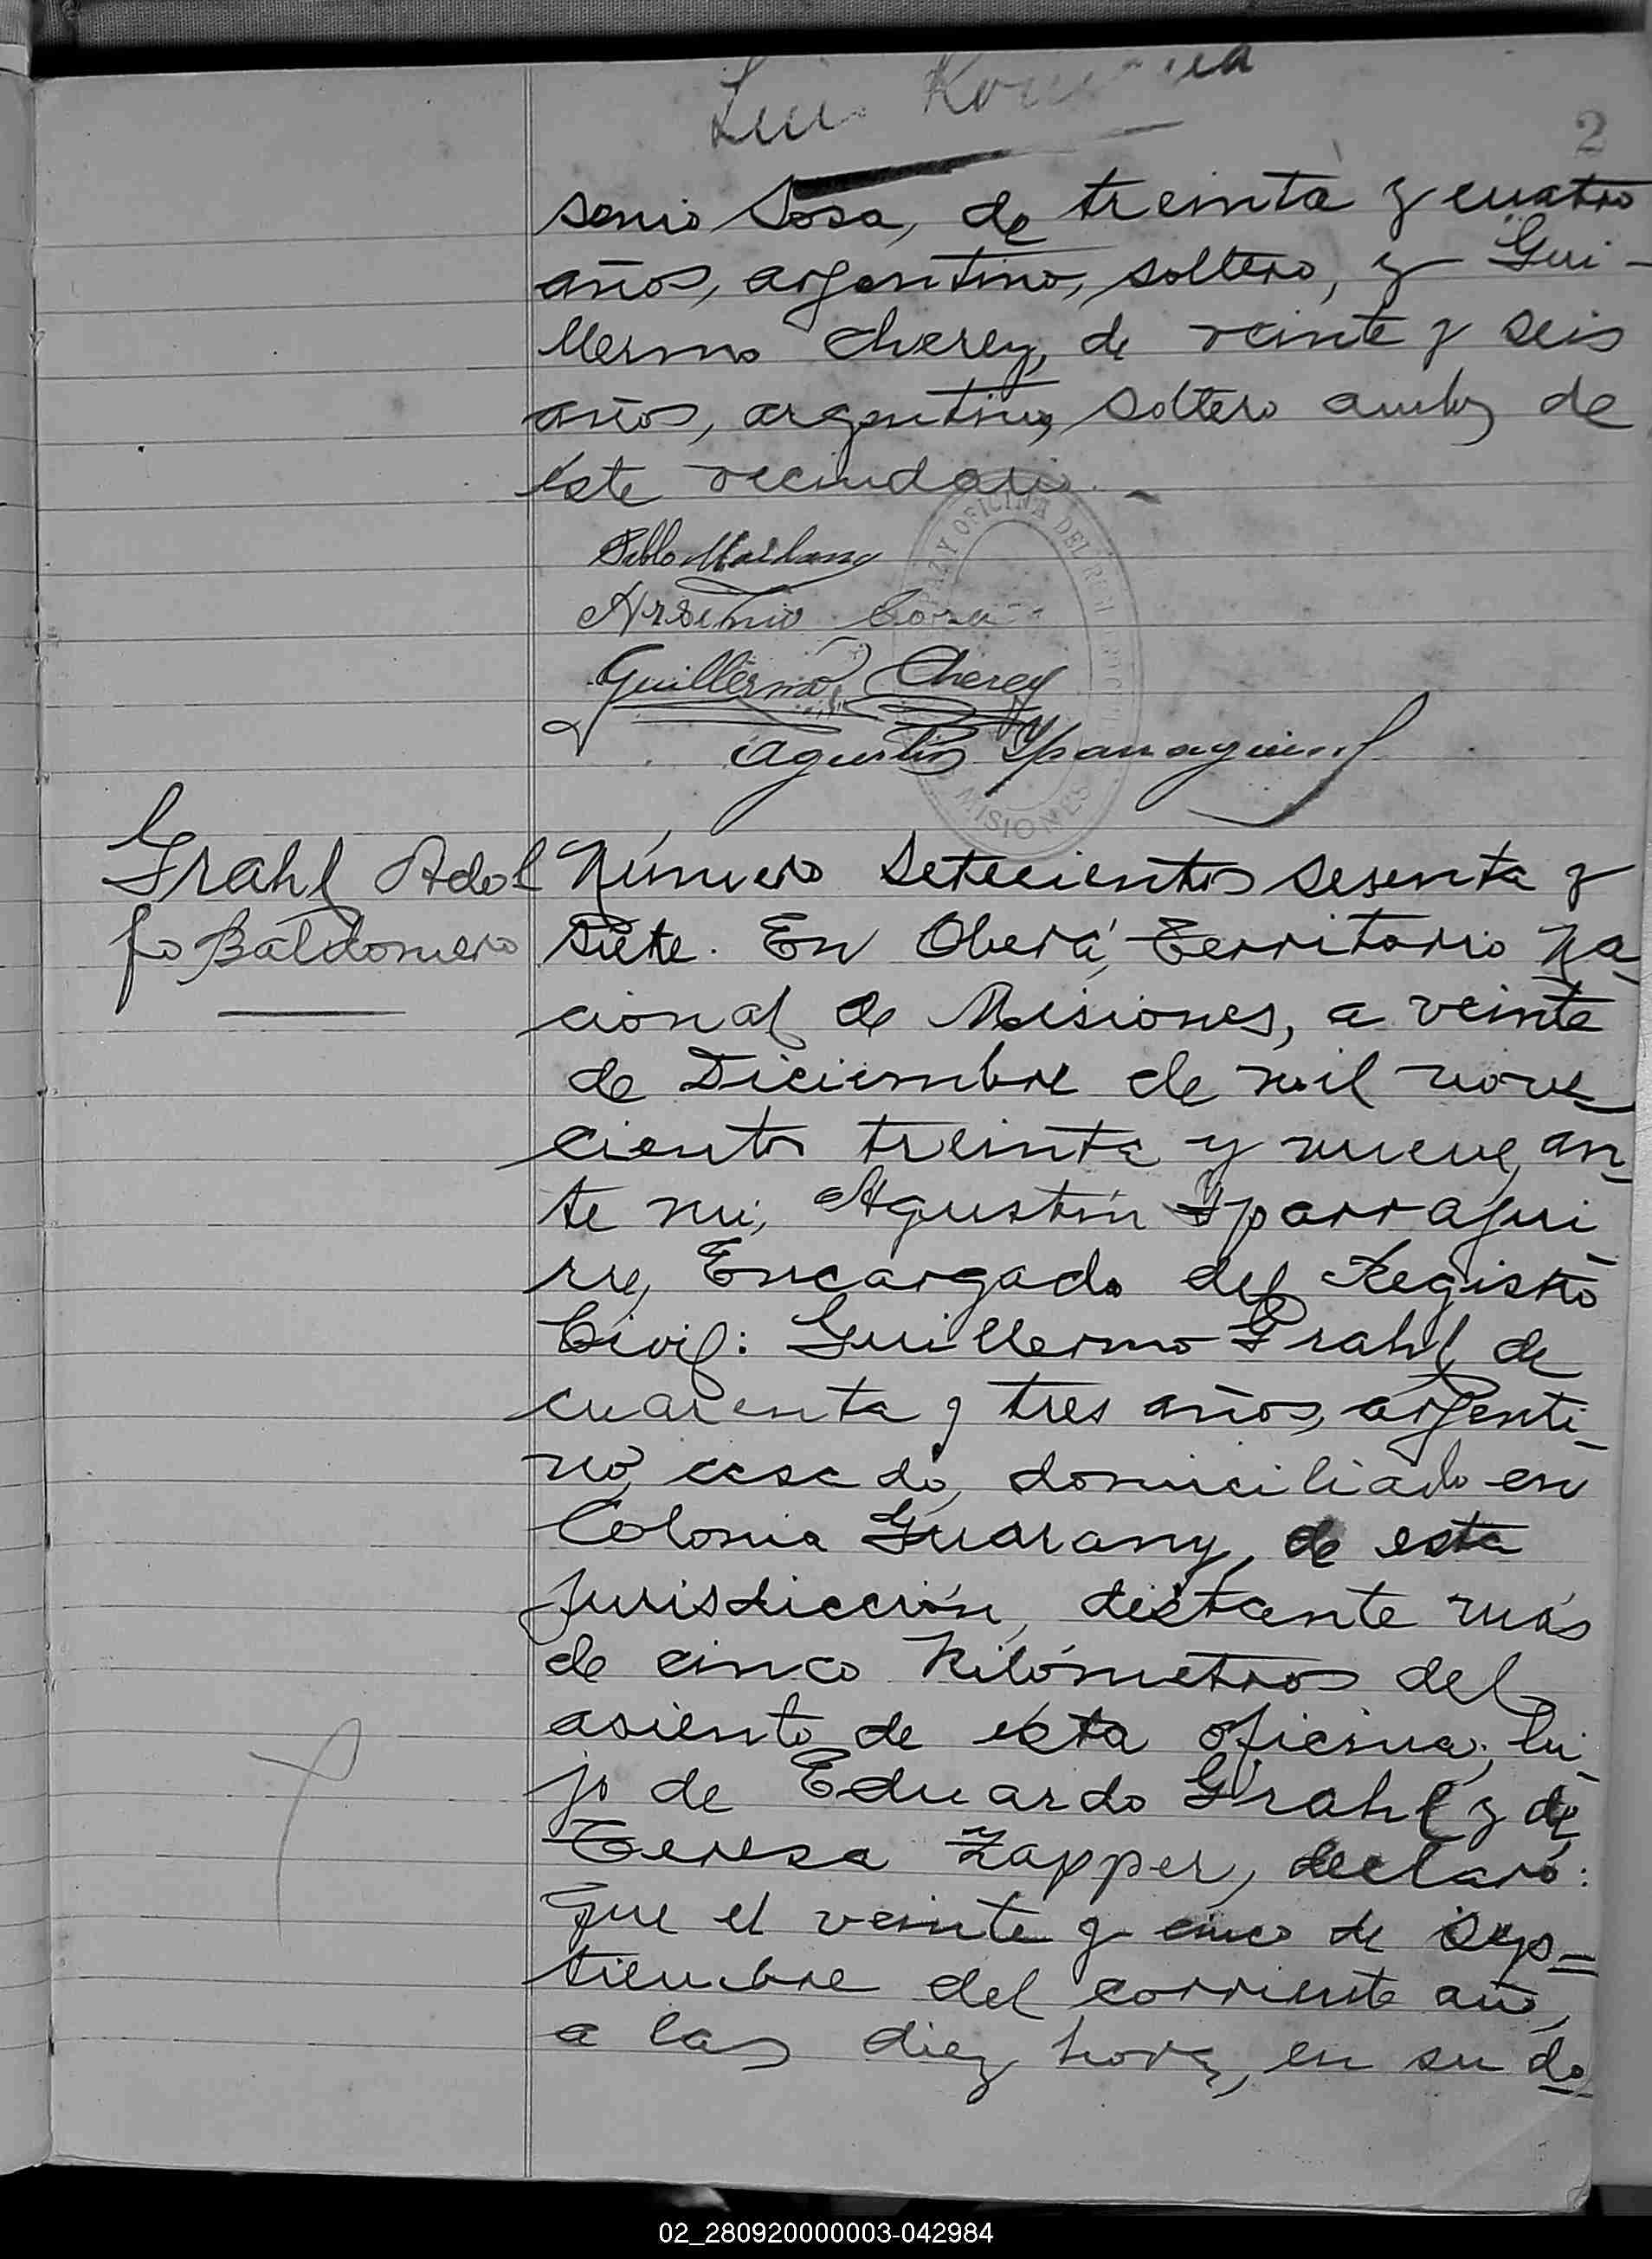 Luis
2
senio Sosa, de treinta y cuatro
años, argentino, soltero, y Gui-
llermo Cherey, de veinte y seis
años, argentino, soltero ambos de
éste vecindario.-
Pablo
Arsenio Sosa
Guillermo Cherey
Agustín Yparraguirre
PAZ Y OFICINA DEL
MISIONES
Grahl Adol
fo Baldomero
Número Setecientos sesenta y
siete. En Oberá, Territorio Na-
cional de Misiones, a veinte
de Diciembre de mil nove-
cientos treinta y nueve, an-
te mi, Agustín Yparragui-
rre, Encargado del Registro
Civil: Guillermo Grahl, de
cuarenta y tres años, argenti-
no, casado, domiciliado en
Colonia Guarany, de esta
jurisdicción, distante más
de cinco Kilómetros del
asiento de ésta oficina; hi-
jo de Eduardo Grahl y de
Teresa Zapper, declaró:
Que el veinte y cinco de Sep=
tiembre del corriente año,
a las diez horas, en su do-
02_280920000003-042984